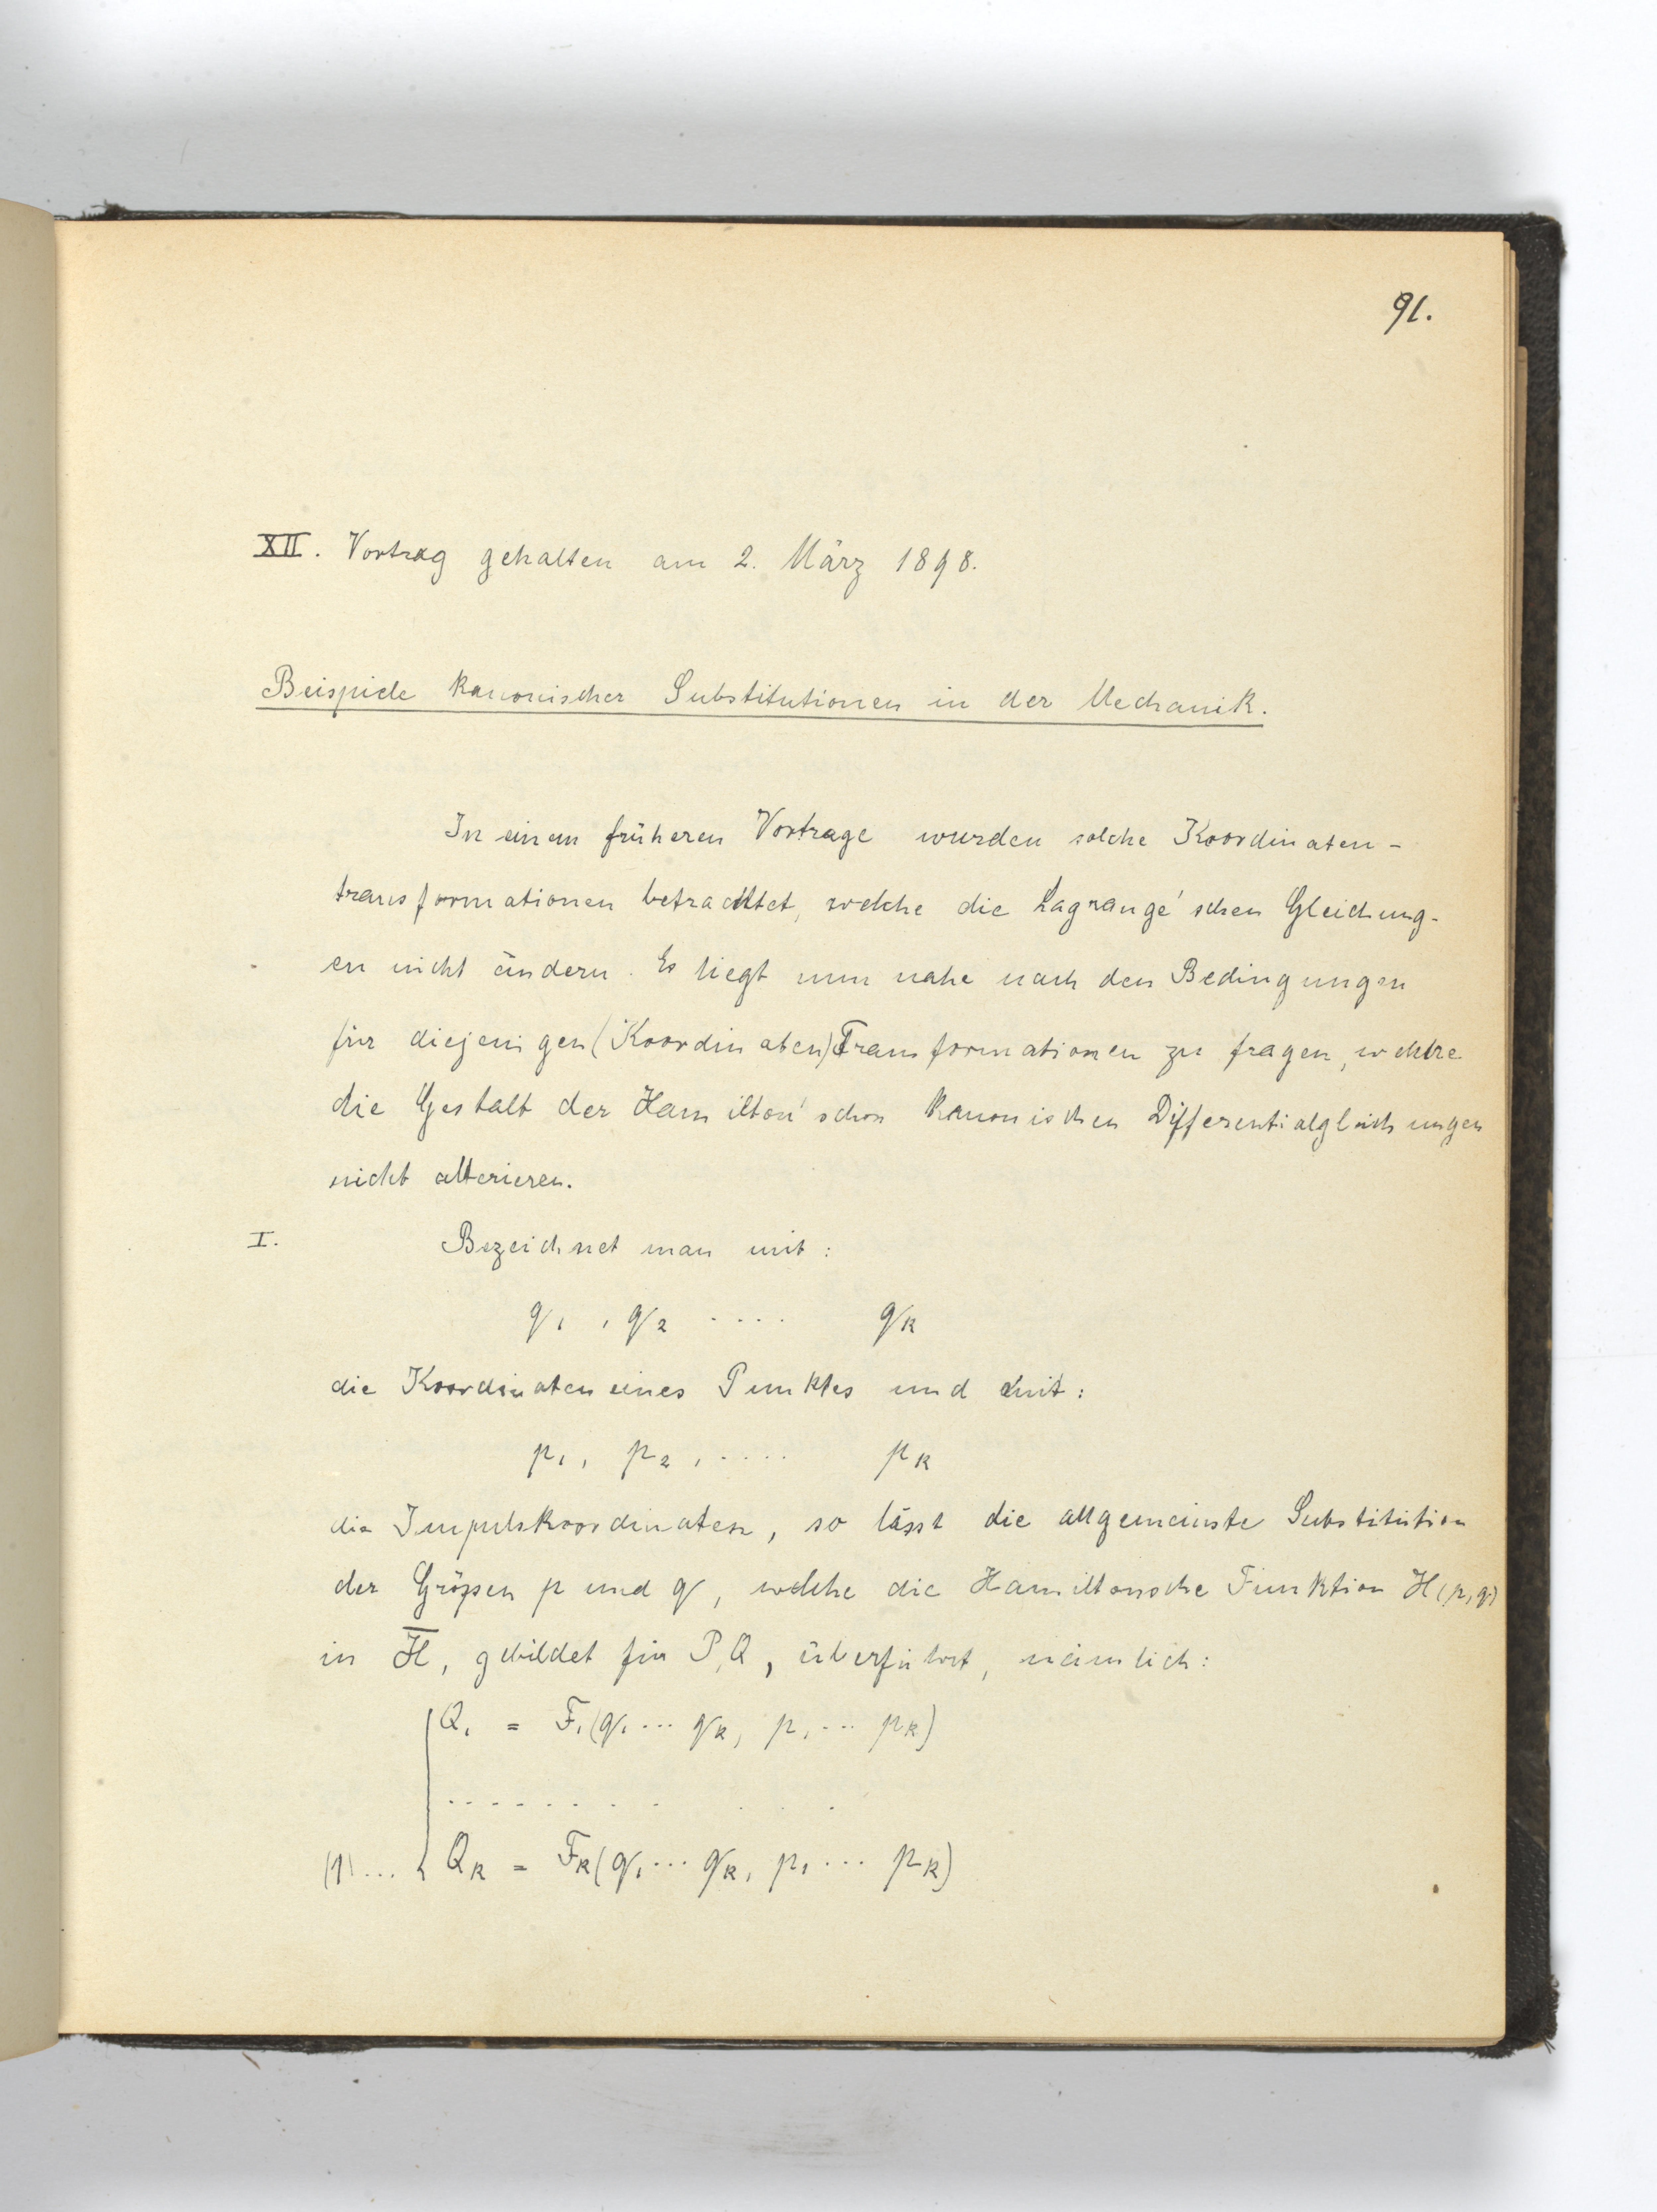 91.
XII. Vortrag gehalten am 2. März 1898.
Beispiele kanonischer Substitutionen in der Mechanik.
In einem früheren Vortrage wurden solche Koordinaten-
transformationen betrachtet, welche die Lagrange'schen Gleichung-
en nicht ändern. Es liegt nun nahe nach den Bedingungen
für diejenigen (Koordinaten) Transformationen zu fragen, welche
die Gestalt der Hamilton'schen kanonischen Differentialgleichungen
nicht alterieren.
I. Bezeichnet man mit:
q₁, q₂ .... qₖ
die Koordinaten eines Punktes und mit:
p₁, p₂, .... pₖ
die Impulskoordinaten, so lässt die allgemeinste Substitution
der Größen p und q, welche die Hamiltonsche Funktion H(p,q)
in H̅, gebildet für P,Q, überführt, nämlich:
Q₁ = F₁(q₁ ... qₖ, p₁ ... pₖ)
. . . . . . . . . . .
(1)... Qₖ = Fₖ(q₁ ... qₖ, p₁ ... pₖ)